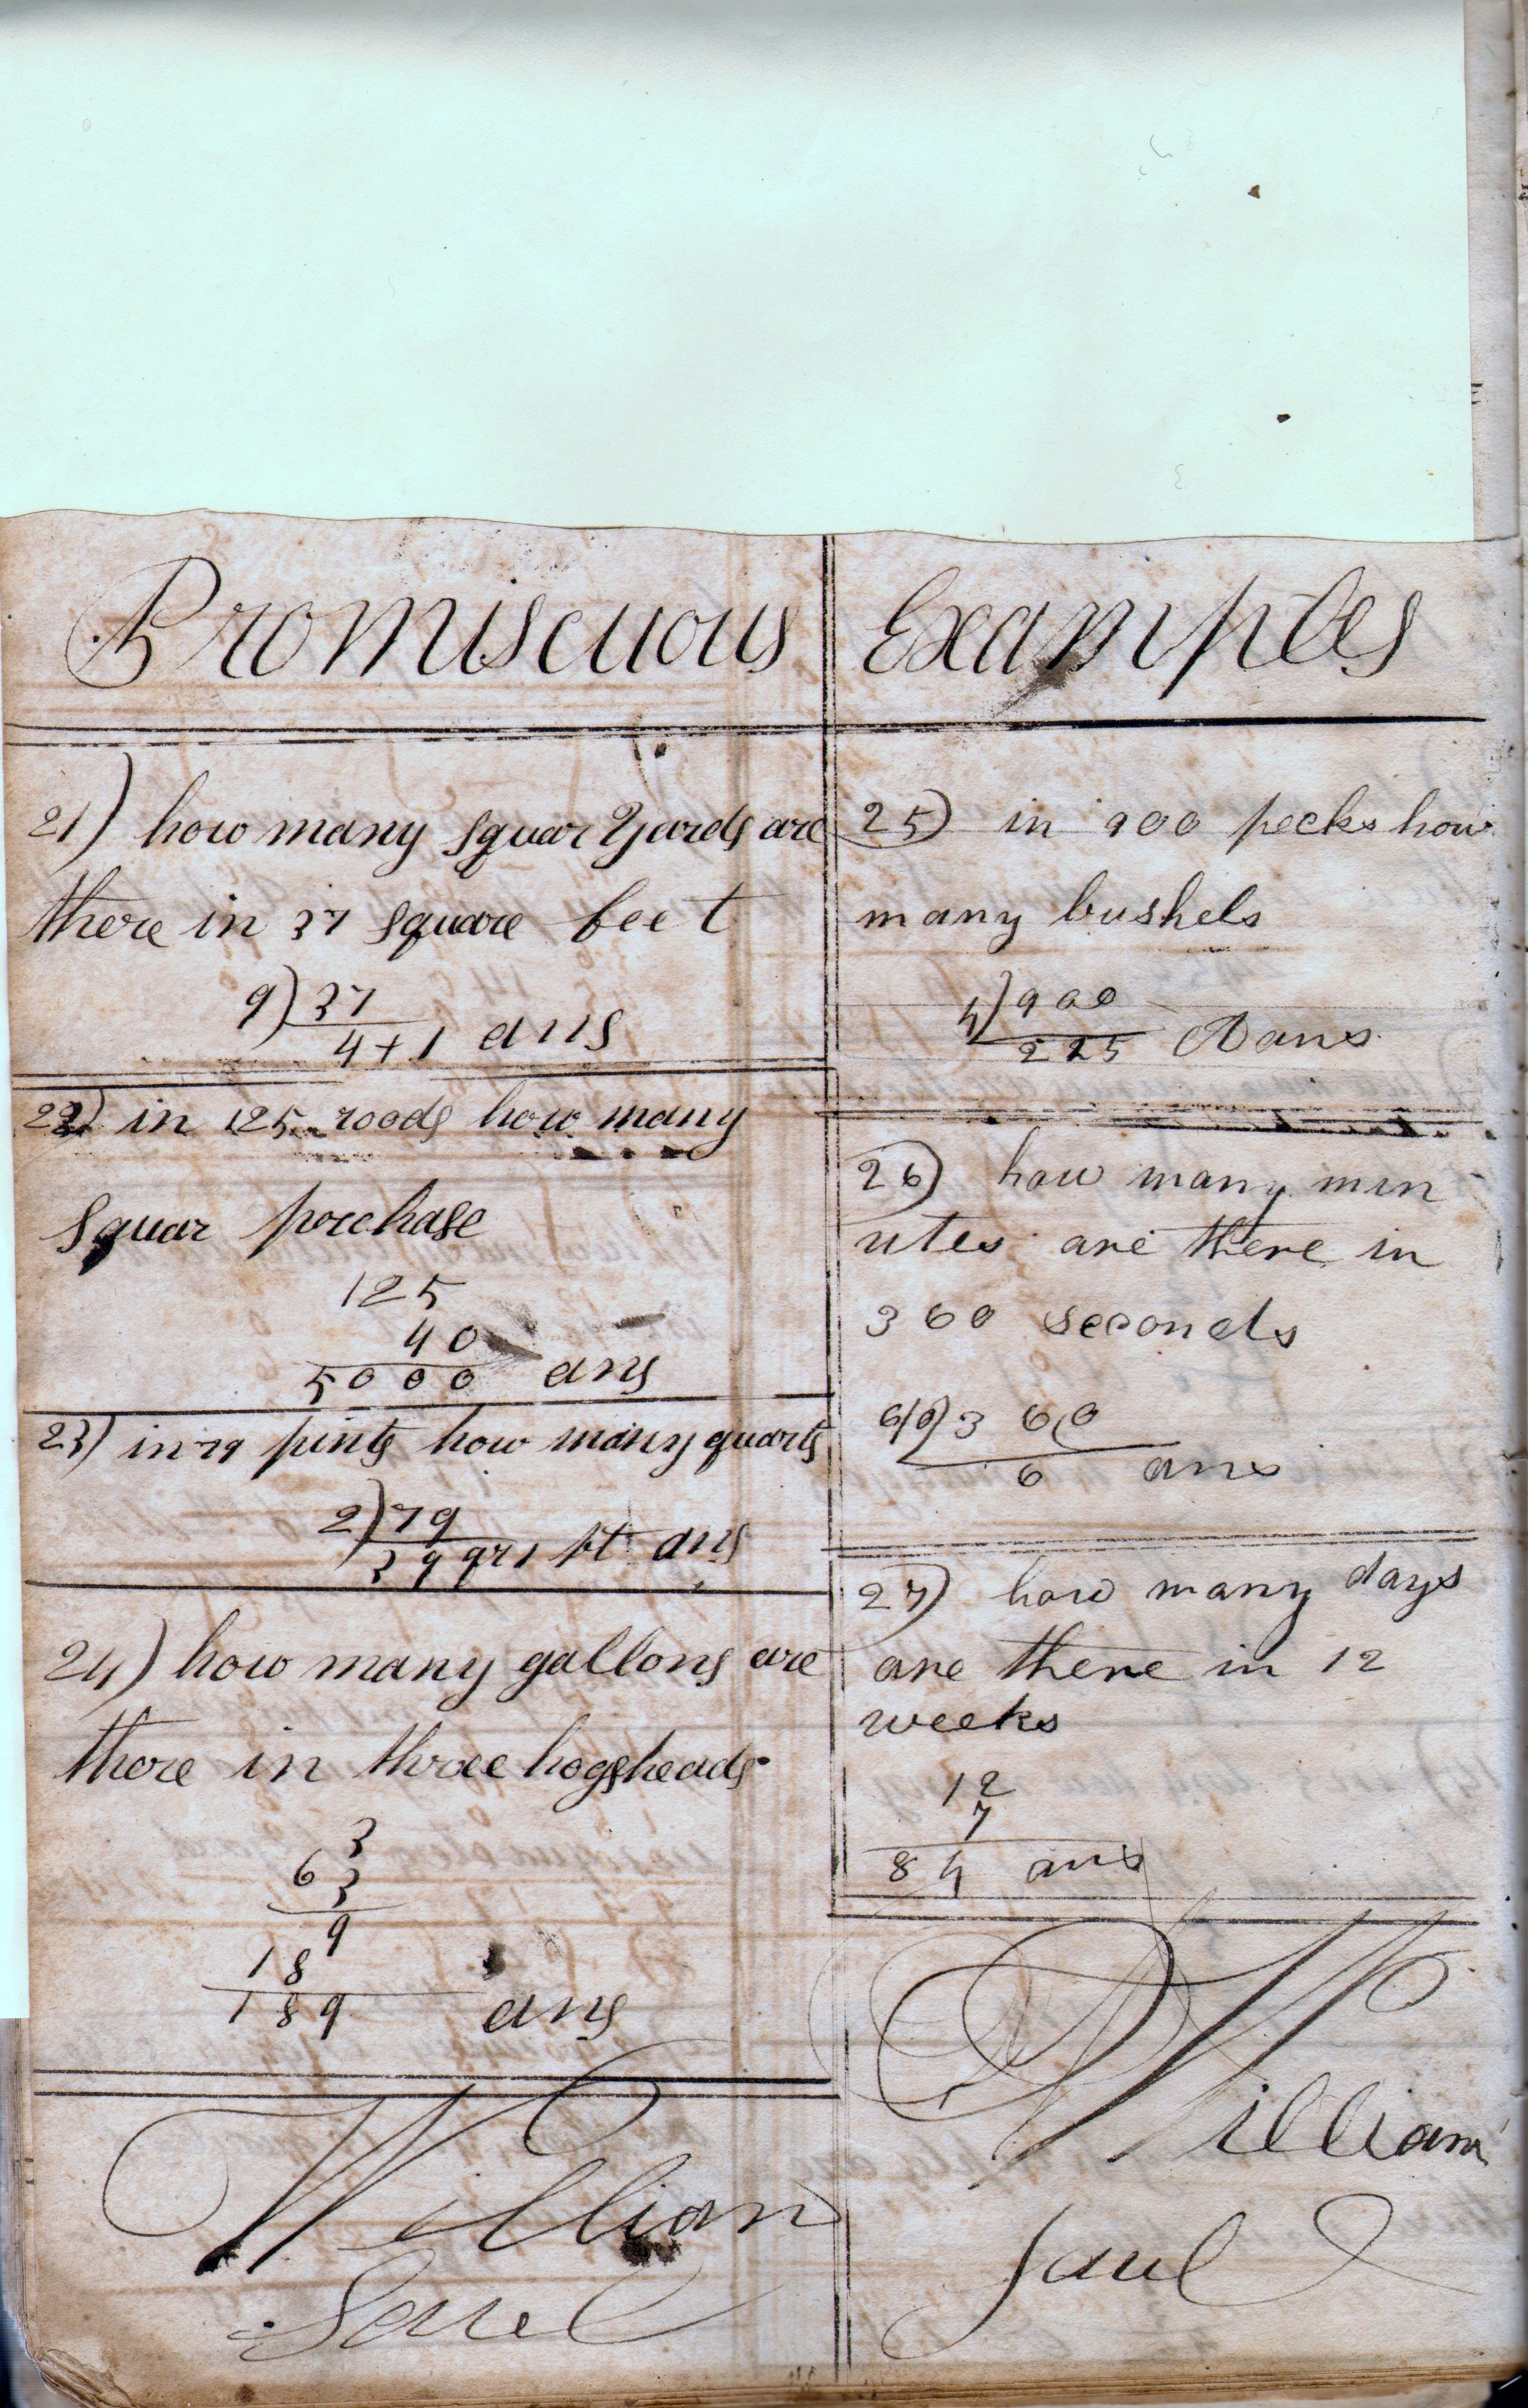 Promiscuous Examples
21) how many squar Yards are
there in 37 square feet
9) 37
4+1 ans
22) in 125 roods how many
squar perchase
125
40
5000 ans
23) in 79 pints how many quarts
2) 79
39 qr 1 pt ans
24) how many gallons are
there in three hogsheads
3
63
9
18
189 ans
William
Saul
25) in 900 pecks how
many bushels
4) 900
225 B ans
26) how many min
utes are there in
360 seconds
6|0) 36|0
6 ans
27) how many days
are there in 12
weeks
12
7
84 ans
William
Saul